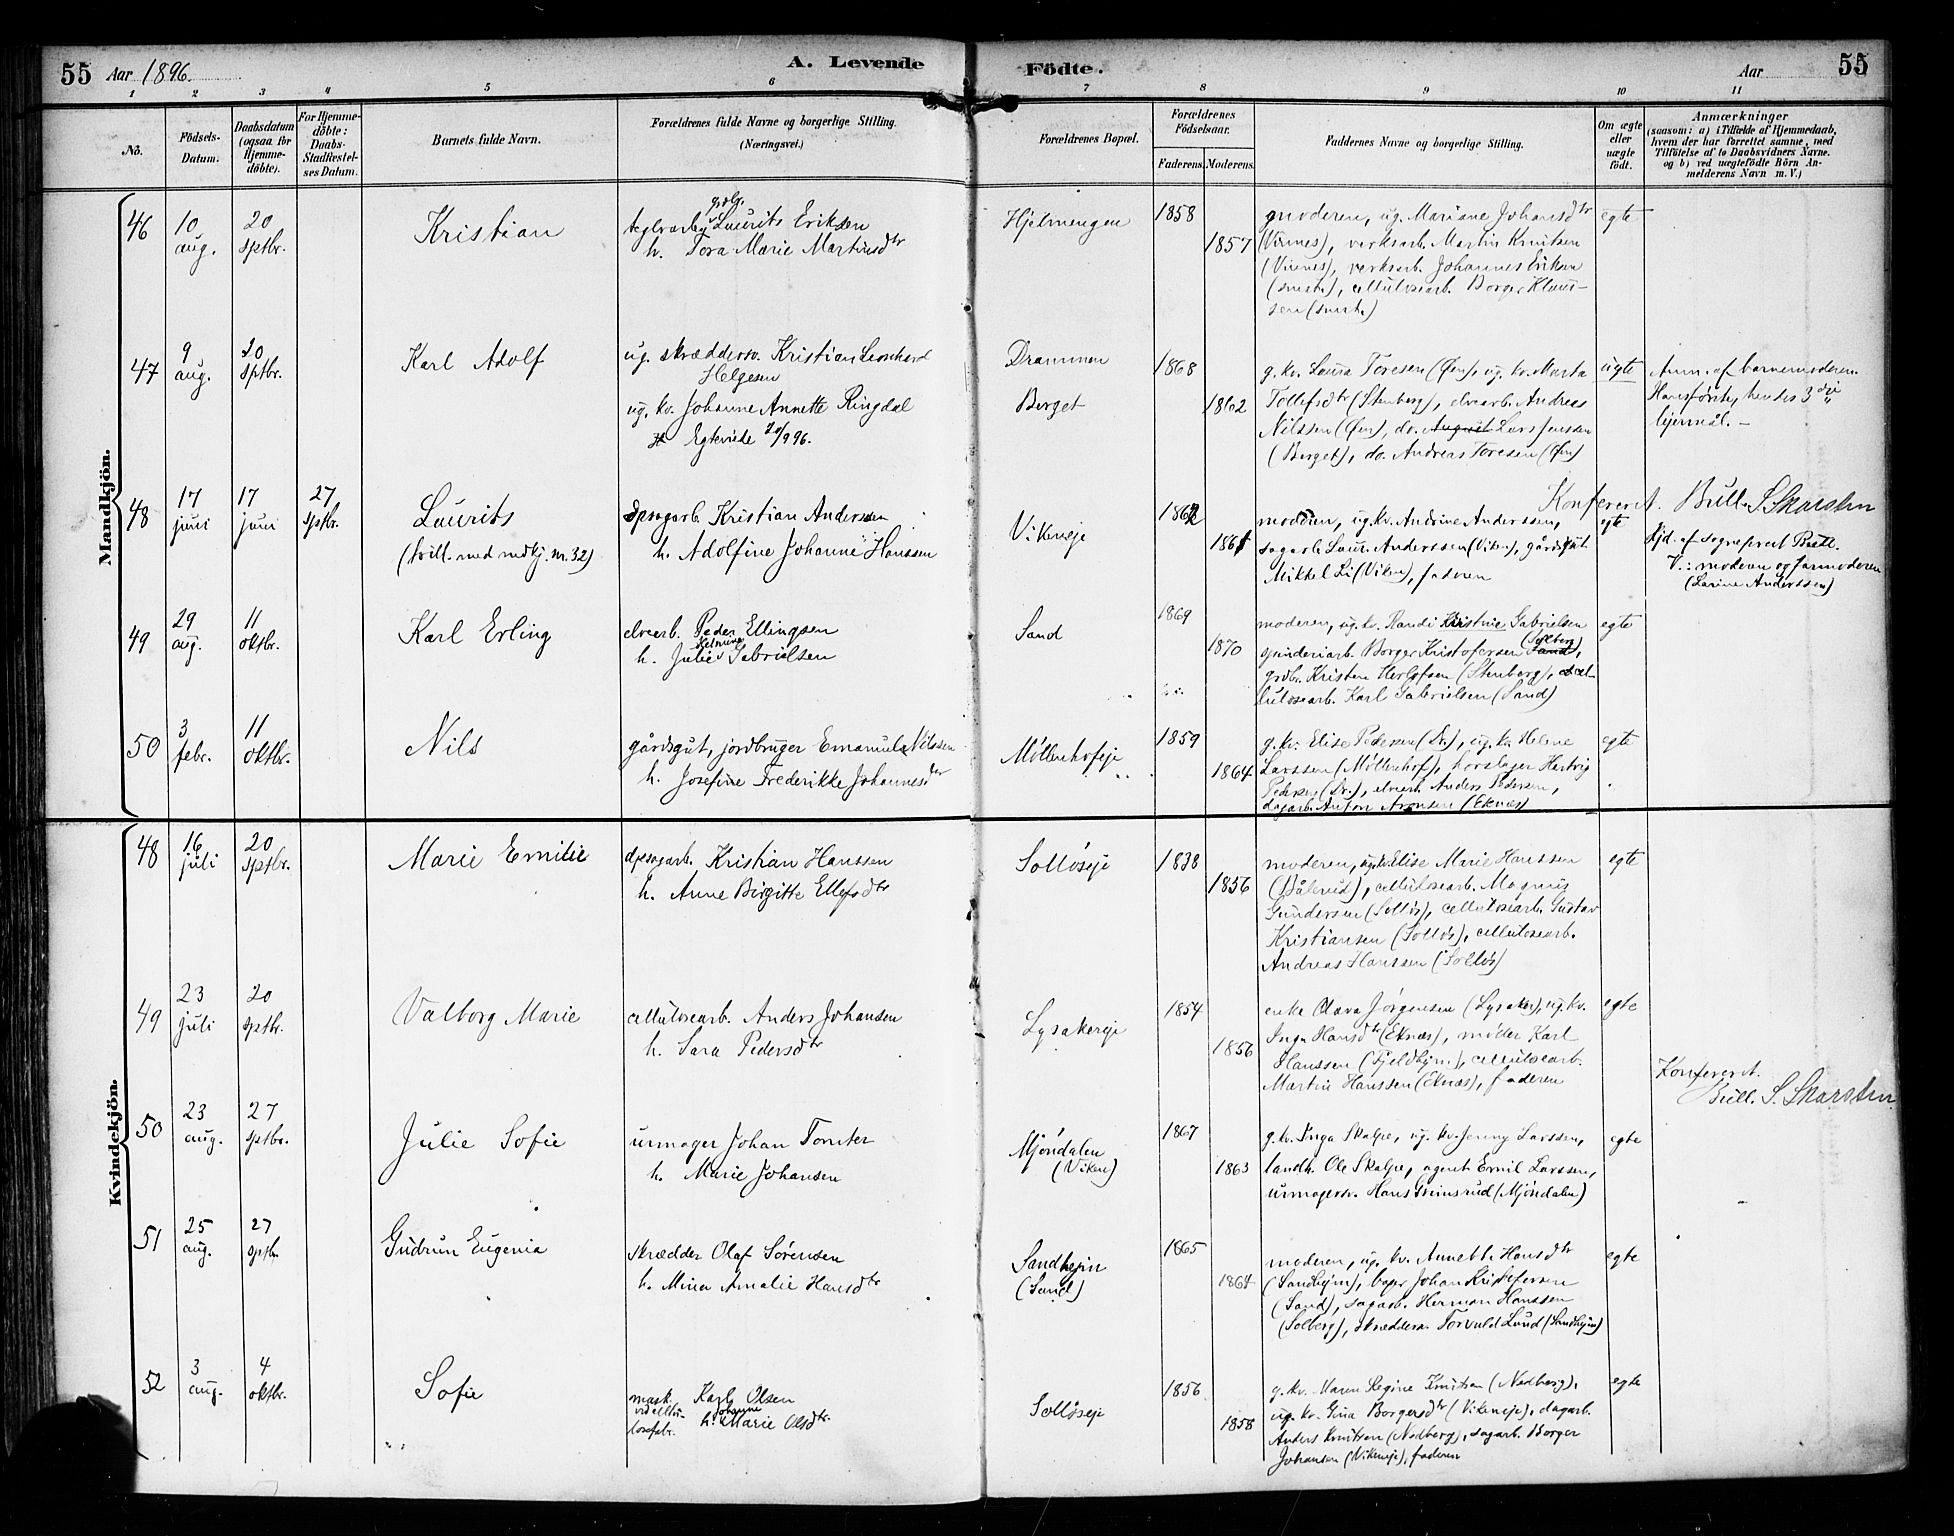 55 Aar 1896. A. Levende Födte. Aar 55
1 2 3 4 5 6 7 8 9 10 11
No.
Födsels-
Datum.
Daabsdatum
(ogsaa for
Hjemme-
döbte).
For Hjemme-
döbte:
Daabs-
Stadfæstel-
ses Datum.
Barnets fulde Navn.
Forældrenes fulde Navne og borgerlige Stilling.
(Næringsvei.)
Forældrenes Bopæl.
Forældrenes
Födselsaar.
Faderens. Moderens.
Faddernes Navne og borgerlige Stilling.
Om ægte
eller
uægte
födt.
Anmærkninger
(saasom: a) i Tilfælde af Hjemmedaab,
hvem der har forrettet samme, med
Tilföielse af to Daabsvidners Navne.
og b) ved uægtefödte Börn An-
melderens Navn m. V.)
Mandkjön.
46
10
aug.
20
sptbr.
Kristian
grdbr.
teglvarbr Laurits Eriksen
h. Tora Marie Martinsdtr
Hjelmengen
1858
1857
moderen, ug. Mariane Johansdtr
(Virnes), verksarb. Martin Knutsen
(Virnes), verksarb. Johannes Eriksen
cellulosearb. Borger Klaus-
sen
egte
47
9
aug.
20
sptbr.
Karl Adolf
ug. skræddersv. Kristian Leonhard
Helgesen
ug. kv. Johanne Annette Ringdal
Egteviede 20/9 96.
Drammen
Berget
1868
1862
g. kv. Laura Toresen (Øen), ug. kv. Marta
Tollefsdtr (Stenberg), elvearb. Andreas
Nilssen (Øen), do. August Lars Jensen
(Berget), do. Andreas Toresen (Øen)
uegte
Anm. af barnemoderen.
Hans første, hendes 3die
lejermål. –
Konfereret. Bull. S. Skarstein
48
17
juni
17
juni
27
sptbr.
Laurits
(tvill. med mdkj. nr. 32)
dpsagarb. Kristian Anderssen
h. Adolfine Johanne Hanssen
Vikeneje
1862
1861
moderen, ug. kv. Andrine Anderssen,
sagarb. Laur. Anderssen (Viken), gårdsgut
Mikkel Li (Viken), faderen
egte
Hjd. af sogneprest Bull.
V.: moderen og farmoderen
(Larine Anderssen)
49
29
aug.
11
oktbr.
Karl Erling
elvearb. Peder Ellingsen
h. Julie Gabrielsen
Sand
1869
1870
moderen, ug. kv. Randi Kristine Gabrielsen
Borger Kristofersen (Solberg) Sand),
grdbr. Kristen Herlofsen (Stenberg), cel-
lulosearb. Karl Gabrielsen (Sand)
egte
50
3
febr.
11
oktbr.
Nils
gårdsgut, jordbruger Emanuel Nilssen
h. Josefine Frederikke Johannesdtr
Møllenhofeje
1859
1864
g. kv. Elise Pedersen (Dr.), ug. kv. Helene
Larssen (Møllenhof), hovslager Hartvig
Pedersen (Dr.), elvearb. Anders Pedersen,
dagarb. Anton Aronsen (Eknæs)
egte
Kvindekjön.
48
16
juli
20
sptbr.
Marie Emilie
dpsagarb. Kristian Hanssen
h. Anne Birgitte Ellefsdtr
Solløseje
1838
1856
moderen, ug. kv. Elise Marie Hanssen
(Bålerud), cellulosearb. Magnus
Gundersen (Solløs), cellulosearb. Gustav
Kristiansen (Solløs), cellulosearb.
Andreas Hanssen (Solløs)
egte
49
23
juli
20
sptbr.
Valborg Marie
cellulosearb. Anders Johansen
h. Sara Pedersdtr
Lysakereje
1854
1856
enke Olava Jørgensen (Lysaker), ug. kv.
Inga Hansdtr (Eknæs), møller Karl
Hanssen (Fjeldhjm.), cellulosearb.
Martin Hanssen (Eknæs), faderen
egte
Konfereret.
Bull. S. Skarstein
50
23
aug.
27
sptbr.
Julie Sofie
urmager Johan Tomter
h. Marie Johansen
Mjøndalen
(Viken)
1867
1863
g. kv. Inga Skalpe, ug. kv. Jenny Larssen,
landh. Ole Skalpe, agent Emil Larssen,
urmagersv. Hans Grimsrud (Mjøndalen)
egte
51
25
aug.
27
sptb.
Gudrun Eugenia
skrædder Olaf Sørensen
h. Mina Amalie Hansdtr
Sandhejm
(Sand)
1865
1864
moderen, ug. kv. Annetti Hansdtr
(Sandhejm), bager Johan Kristofersen
(Sand), sagarb. Herman Hanssen
(Solberg), skræddersv. Torvald Lund (Sandhejm)
egte
52
3
aug.
4
oktbr.
Sofie
mask.
ved cellu-
losefabr.
Karl Olsen
Johanne
h. Marie Olsdtr.
Solløseje
1856
1858
g. kv. Maren Regine Knutsen (Nedberg),
ug. kv. Gina Borgersdtr (Vikeneje), dagarb.
Anders Knutsen (Nedberg), sagarb. Borger
Johansen (Vikeneje), faderen
egte